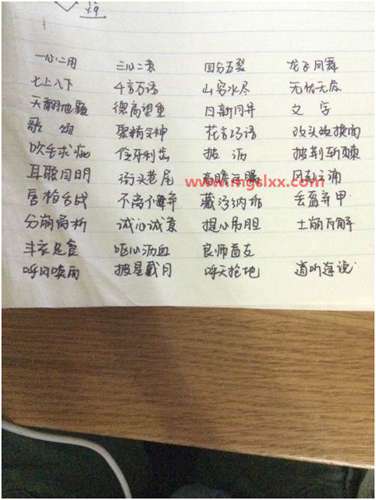 一心二用 三心二意 四分五裂 龙飞凤舞
七上八下 千言万语 山穷水尽 无忧无虑
天翻地覆 德高望重 日新月异 文字
歌颂 聚精会神 花言巧语 改头换面
吹毛求疵 伶牙利齿 披荆斩棘
耳聪目明 街头巷尾 高瞻 风
www.mgslxx.com
唇枪舌战 不屑 藏污纳垢 丢盔弃甲
分崩离析 诚心诚意 提心吊胆 土崩瓦解
丰衣足食 呕心沥血 良师益友
呼风唤雨 披星戴月 呼天抢地 道听途说